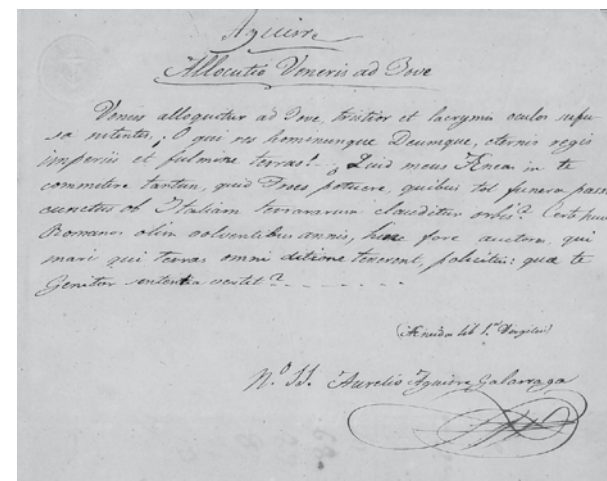 Aguirre
Allocutio Veneris ad Jove
Venus alloquitur ad Jove, tristior et lacrymis oculos sufu-
sa nitentes, ¡O qui res hominunque Deumque, eternis regis
imperiis et fulmine terras!... ¿Quid meus Æneas in te
commitere tantum, quid Troes potuere, quibus tot funera pasis
cunctus ob Italiam terrararum clauditur orbis? Certe hunc
Romanos olim volventibus annis, hinc fore auctores, qui
mari qui terras omni ditione tenerent, policitus: quæ te
Genitor sententia vertit?
(Æneida lib 1.º Vergilii)
N.º 11. Aurelio Aguirre Galarraga